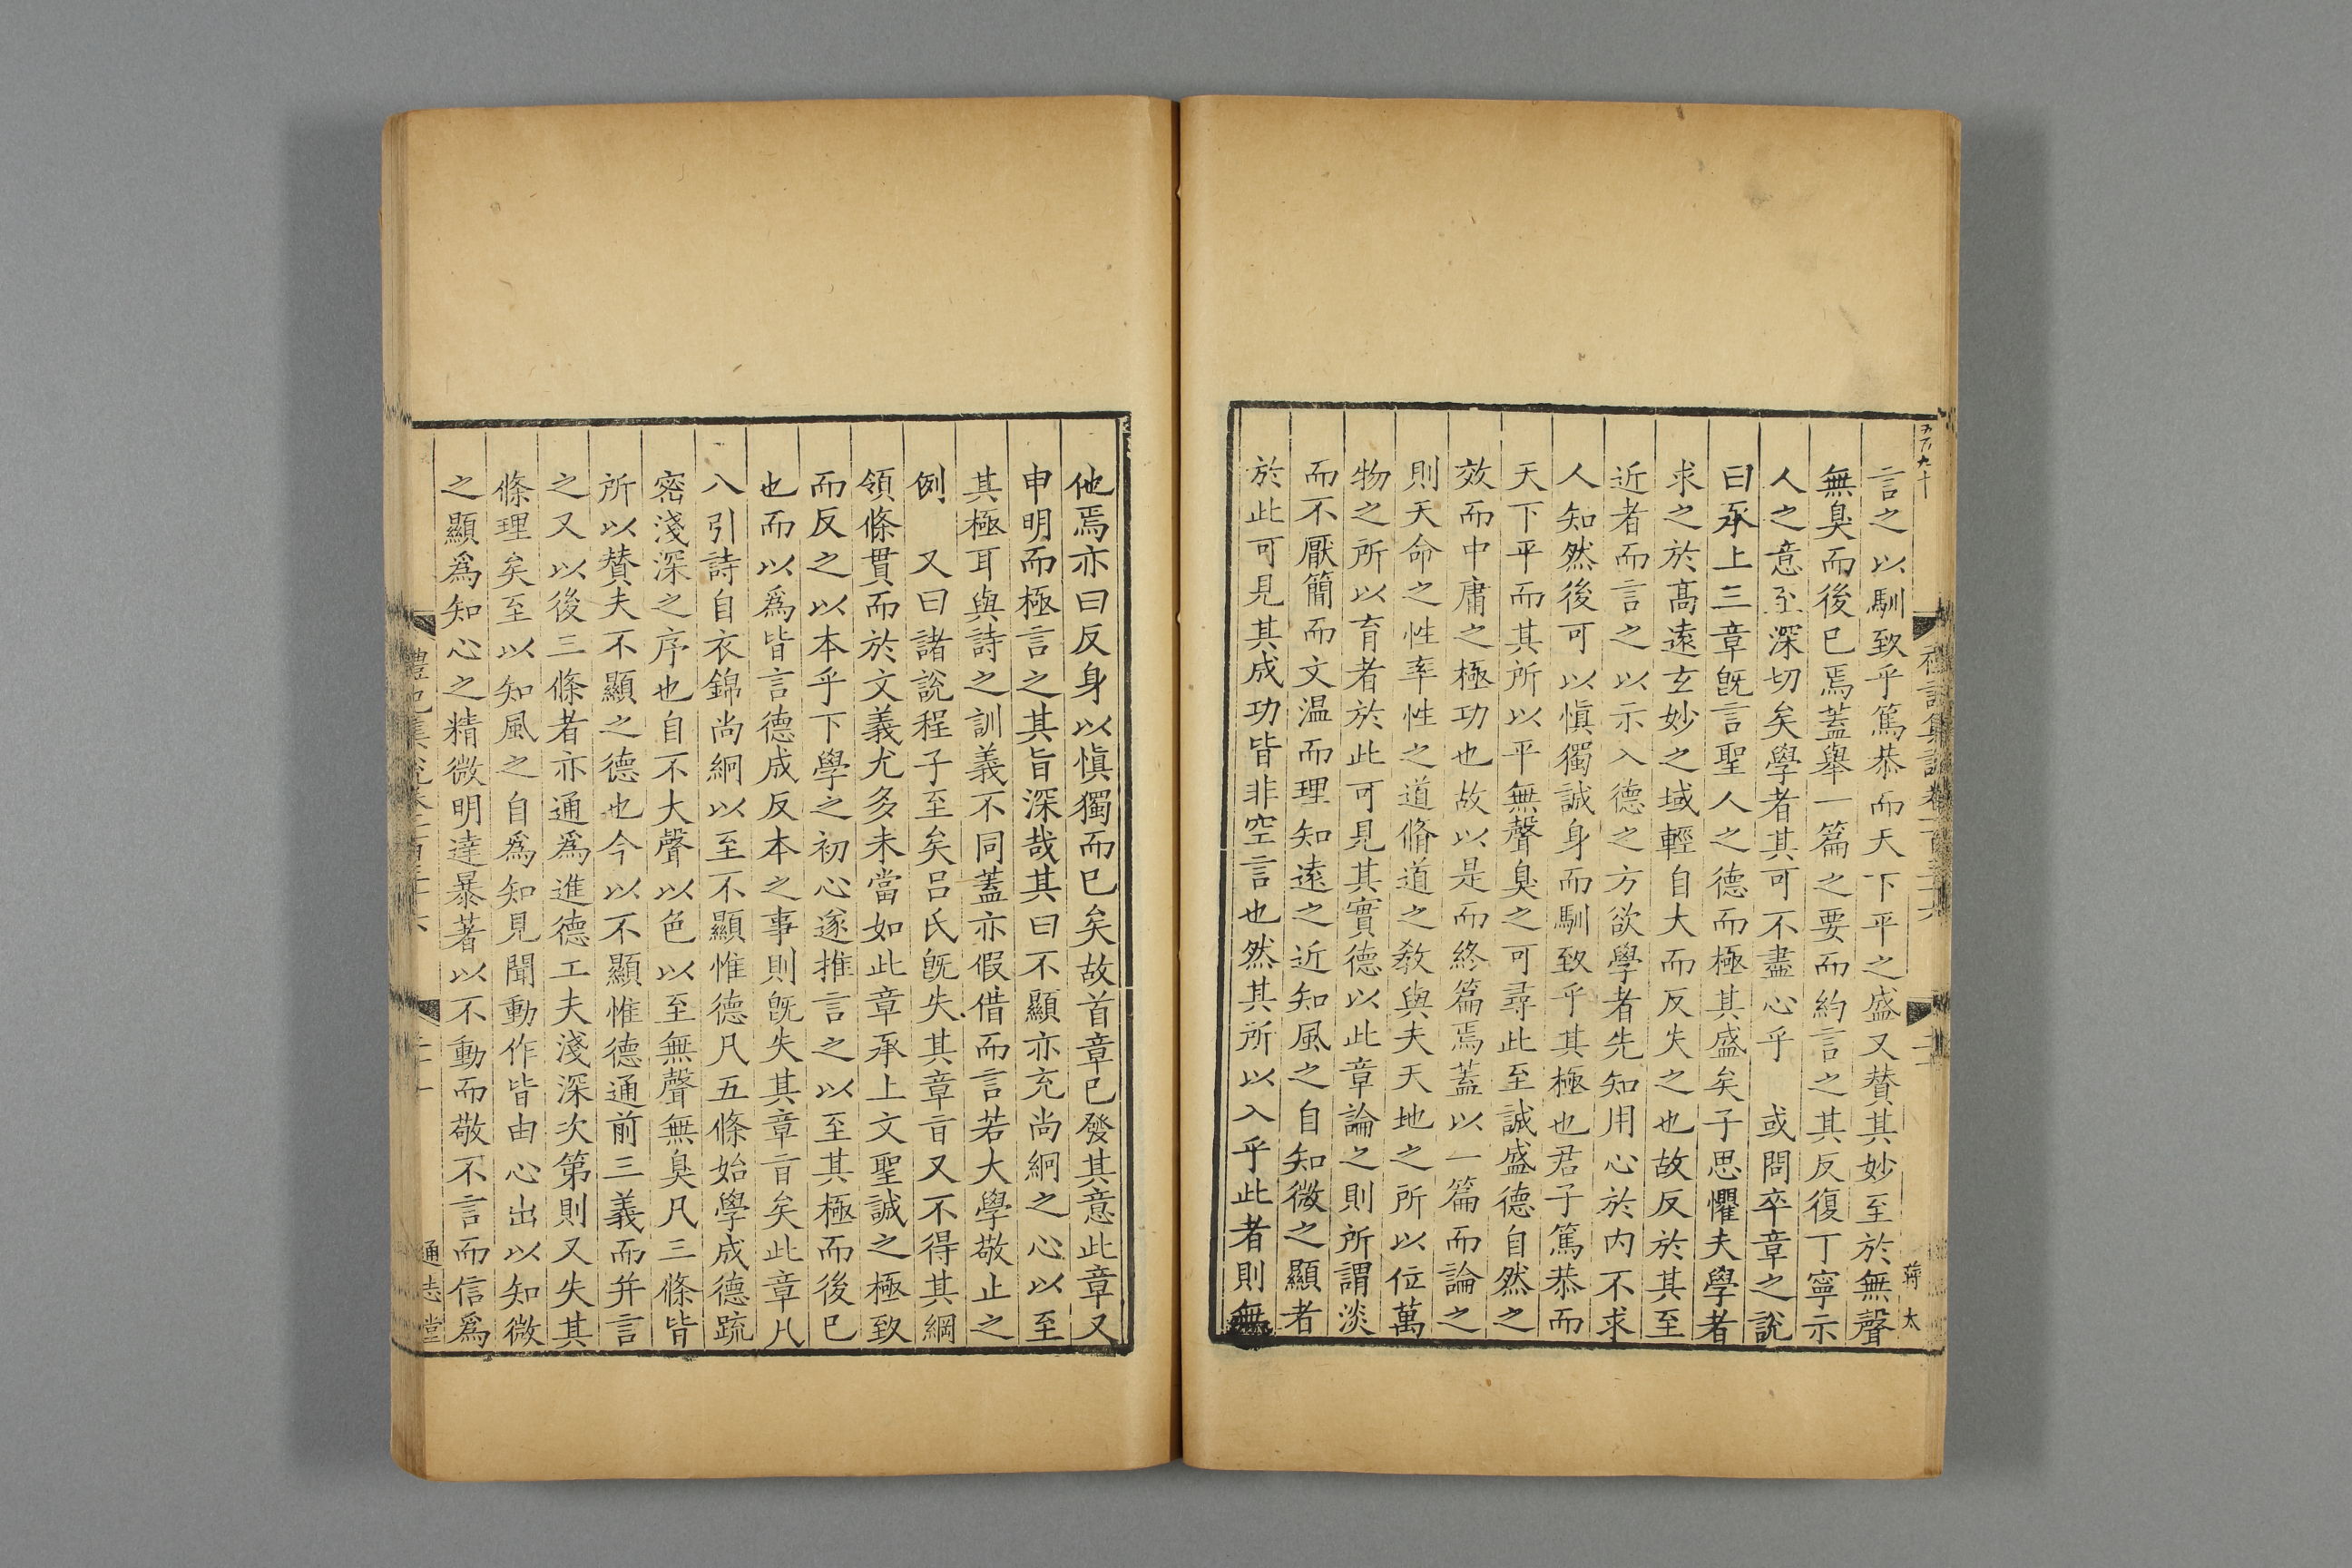 言之以馴致乎篤恭而天下平之盛又賛其妙至於無聲
無臭而後已焉蓋舉一篇之要而約言之其反復丁寧示
人之意至深切矣學者其可不盡心乎　或問卒章之說
曰承上三章旣言聖人之德而極其盛矣子思懼夫學者
求之於髙遠玄妙之域輕自大而反失之也故反於其至
近者而言之以示入德之方欲學者先知用心於内不求
人知然後可以愼獨誠身而馴致乎其極也君子篤恭而
天下平而其所以平無聲臭之可尋此至誠盛德自然之
效而中庸之極功也故以是而終篇焉蓋以一篇而論之
則天命之性率性之道脩道之敎與夫天地之所以位萬
物之所以育者於此可見其實德以此章論之則所謂淡
而不厭簡而文温而理知遠之近知風之自知微之顯者
於此可見其成功皆非空言也然其所以入乎此者則無
他焉亦曰反身以愼獨而已矣故首章已發其意此章又
申明而極言之其旨深哉其曰不顯亦充尚絅之心以至
其極耳與詩之訓義不同蓋亦假借而言若大學敬止之
例　又曰諸說程子至矣吕氏旣失其章旨又不得其綱
領條貫而於文義尤多未當如此章承上文聖誠之極致
而反之以本乎下學之初心遂推言之以至其極而後已
也而以爲皆言德成反本之事則旣失其章旨矣此章八
八引詩自衣錦尚絅以至不顯惟德凡五條始學成德疏
密淺深之序也自不大聲以色以至無聲無臭凡三條皆
所以賛夫不顯之德也今以不顯惟德通前三義而并言
之又以後三條者亦通爲進德工夫淺深次第則又失其
條理矣至以知風之自爲知見聞動作皆由心出以知微
之顯爲知心之精微明達暴著以不動而敬不言而信爲
通志堂